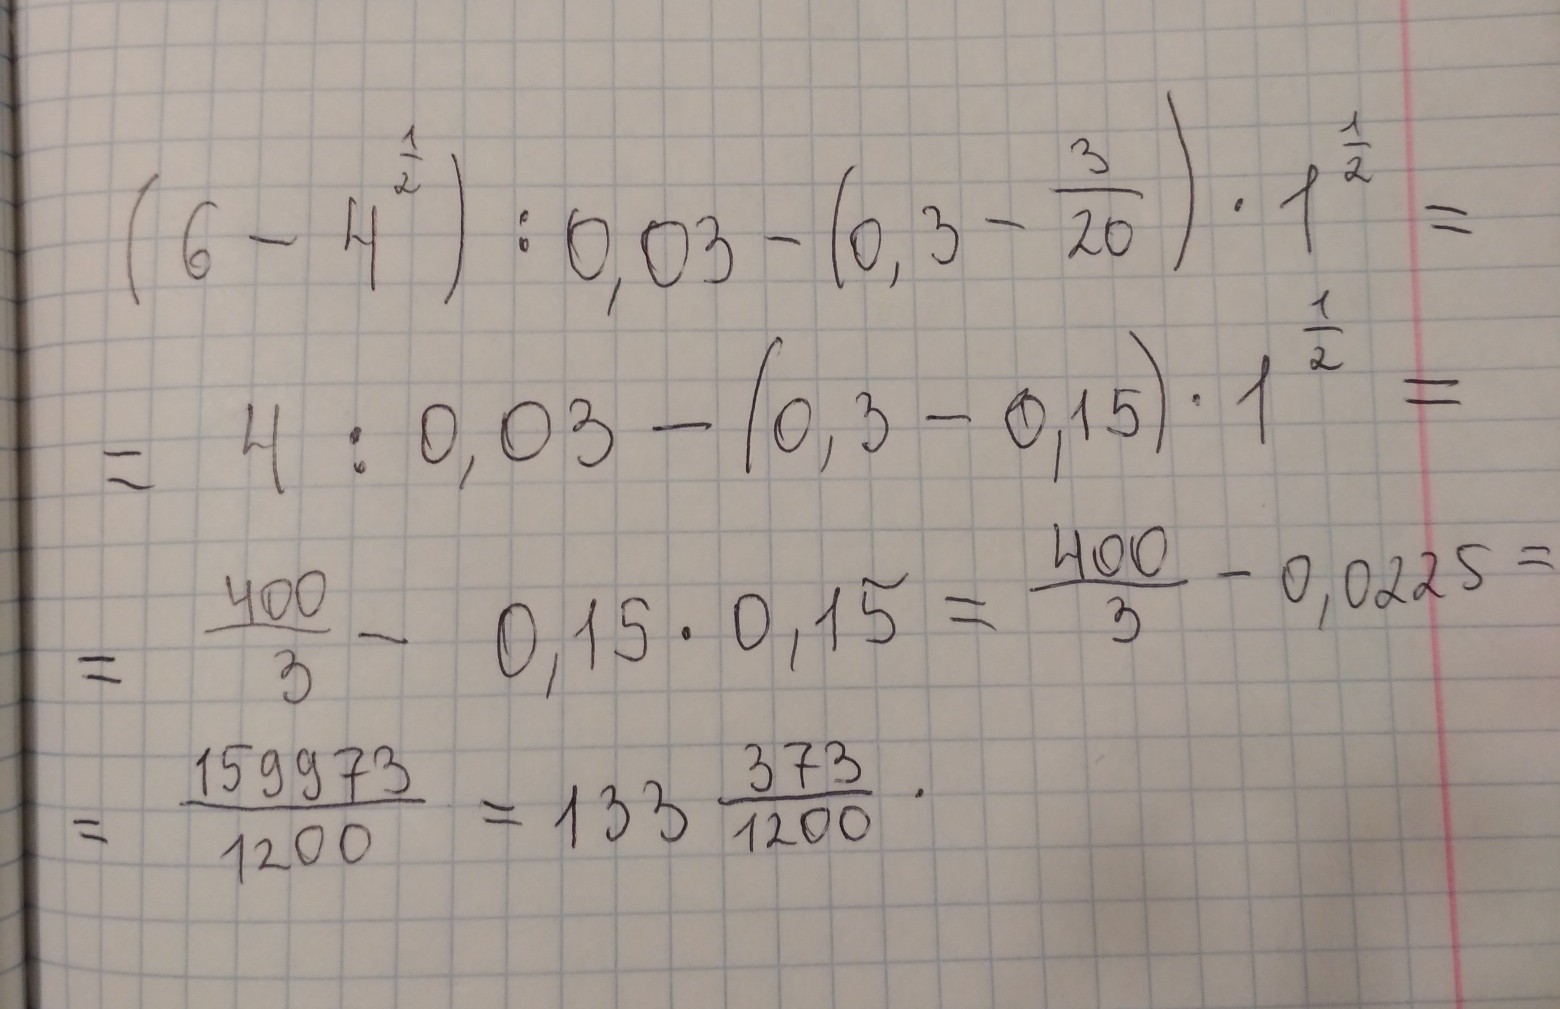 (6 - 4^{\frac{1}{2}}) : 0,03 - (0,3 - \frac{3}{20}) \cdot 1^{\frac{1}{2}} =
= 4 : 0,03 - (0,3 - 0,15) \cdot 1^{\frac{1}{2}} =
= \frac{400}{3} - 0,15 \cdot 0,15 = \frac{400}{3} - 0,0225 =
= \frac{159973}{1200} = 133 \frac{373}{1200} .